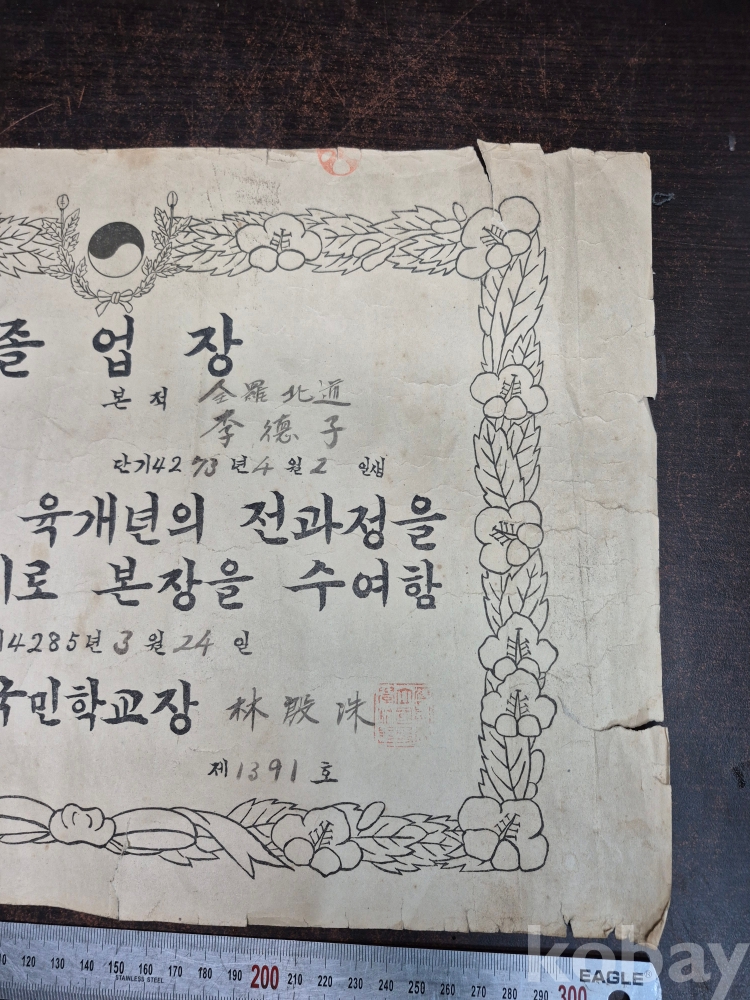 졸업장
본적 全羅北道
李德子
단기4273년4월2일생
육개년의 전과정을
로 본장을 수여함
4285년3월24일
국민학교장 林殷洙
제1391호
kobay
110 120 130 140 150 160 170 180 190 200 210 220 230 240 250 260 270 280 290 300
STAINLESS STEEL
EAGLE